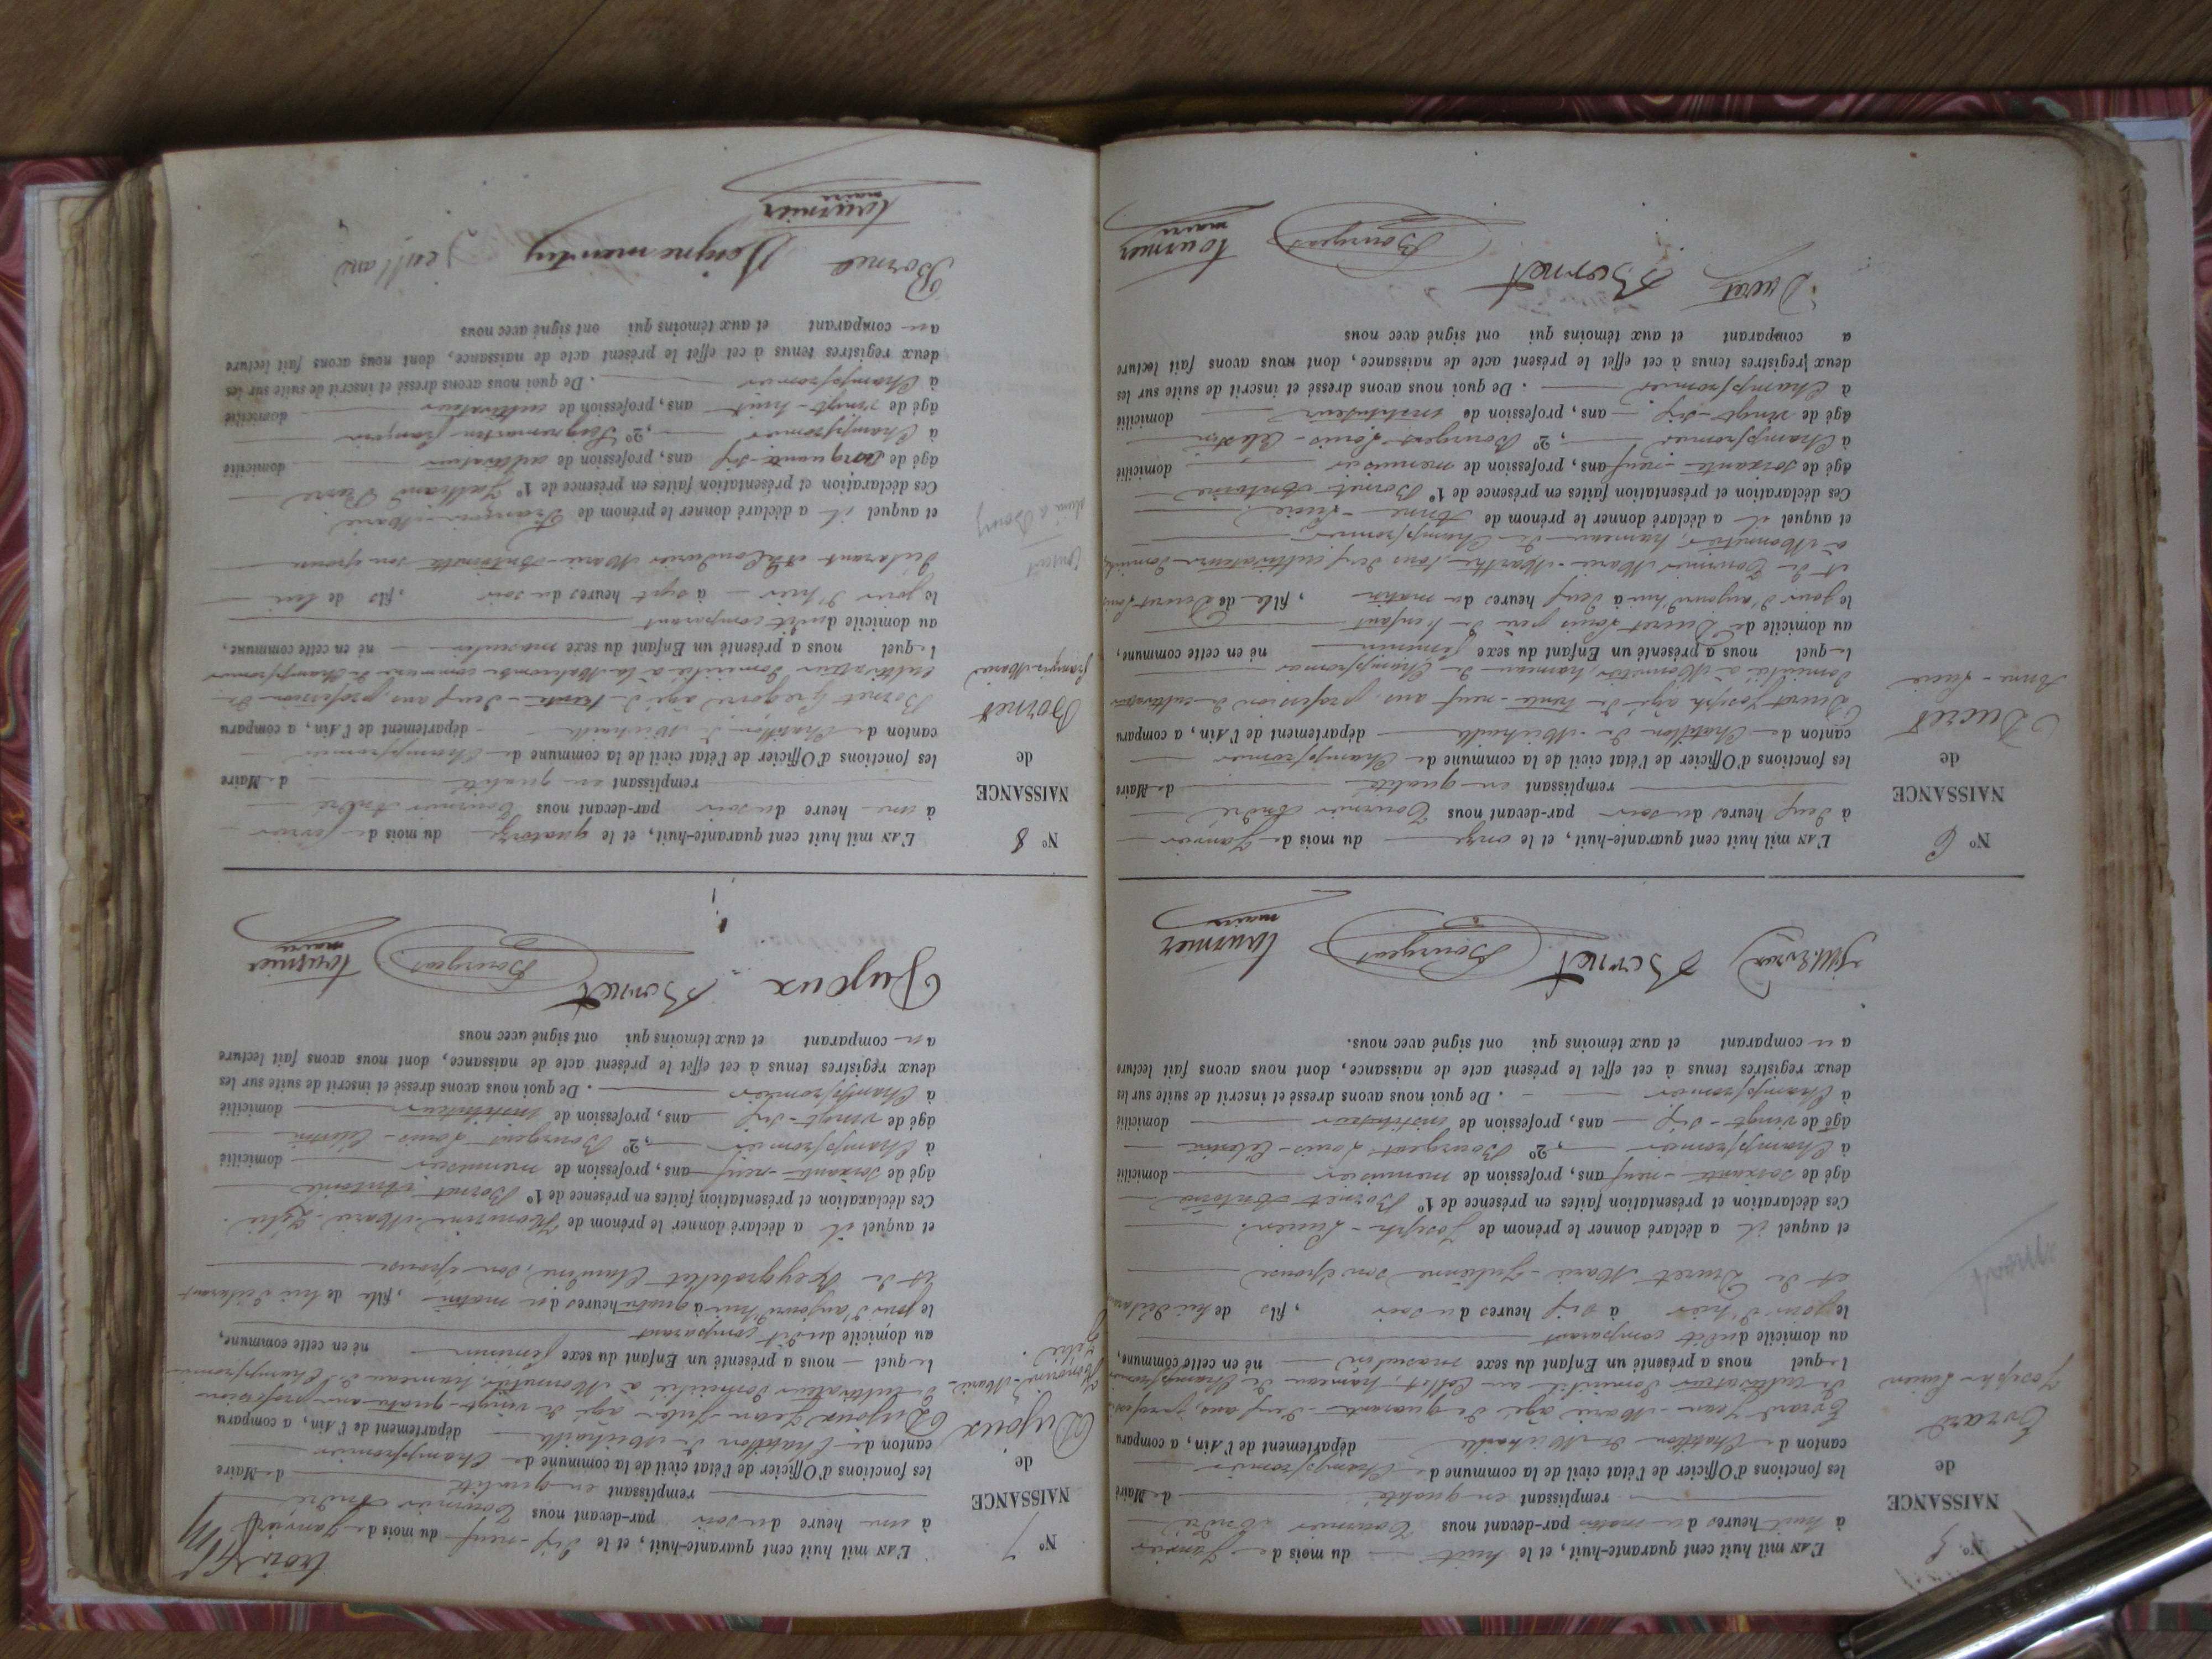 N° 5
NAISSANCE
de
Evrard
Joseph-Lucien
L'AN mil huit cent quarante-huit, et le huit du mois de Janvier
à huit heures du matin par-devant nous Tournier André
remplissant en qualité de Maire
les fonctions d'Officier de l'état civil de la commune de Champfromier
canton de Chatillon de Michaille département de l'Ain, a comparu
Evrard Jean-Marie âgé de quarante-deux ans, profession
de cultivateur domicilié au Collet, hameau de Champfromier
lequel nous a présenté un Enfant du sexe masculin né en cette commune,
au domicile dudit comparant
le jour d'hier à dix heures du soir, fils de lui déclarant
et de Ducret Marie-Julienne son épouse
et auquel il a déclaré donner le prénom de Joseph-Lucien.
Ces déclaration et présentation faites en présence de 1° Bornet Antoine
âgé de soixante-neuf ans, profession de menuisier domicilié
à Champfromier, 2° Bourgeat Louis-Célestin
âgé de vingt-dix ans, profession de instituteur domicilié
à Champfromier. De quoi nous avons dressé et inscrit de suite sur les
deux registres tenus à cet effet le présent acte de naissance, dont nous avons fait lecture
au comparant et aux témoins qui ont signé avec nous.
Bornet Bourgeat tournier
maire
N° 6
NAISSANCE
de
Ducret
Anne-Lucie
L'AN mil huit cent quarante-huit, et le onze du mois de Janvier
à deux heures du soir par-devant nous Tournier André
remplissant en qualité de Maire
les fonctions d'Officier de l'état civil de la commune de Champfromier
canton de Chatillon de Michaille département de l'Ain, a comparu
Ducret Joseph âgé de trente-neuf ans, profession de cultivateur
domicilié à Monnetier, hameau de Champfromier
lequel nous a présenté un Enfant du sexe féminin né en cette commune,
au domicile de Ducret Louis père de l'enfant
le jour d'aujourd'hui à deux heures du matin, fille de Ducret Louis
et de Tournier Marie-Marthe tous deux cultivateurs domiciliés
à Monnetier, hameau de Champfromier
et auquel il a déclaré donner le prénom de Anne-Lucie
Ces déclaration et présentation faites en présence de 1° Bornet Antoine
âgé de soixante-neuf ans, profession de menuisier domicilié
à Champfromier, 2° Bourgeat Louis-Célestin
âgé de vingt-dix ans, profession de instituteur domicilié
à Champfromier. De quoi nous avons dressé et inscrit de suite sur les
deux registres tenus à cet effet le présent acte de naissance, dont nous avons fait lecture
a comparant et aux témoins qui ont signé avec nous
Ducret Bornet Bourgeat tournier
maire
N° 7
NAISSANCE
de
Dujoux
Honorine-Marie-
Zélie.
L'AN mil huit cent quarante-huit, et le dix-neuf du mois de Janvier
à une heure du soir par-devant nous Tournier André
remplissant en qualité de Maire
les fonctions d'Officier de l'état civil de la commune de Champfromier
canton de Chatillon de Michaille département de l'Ain, a comparu
Dujoux Jean-Jules âgé de vingt-quatre ans profession
de cultivateur domicilié à Monnetier, hameau de Champfromier
lequel nous a présenté un Enfant du sexe féminin né en cette commune,
au domicile dudit comparant
le jour d'aujourd'hui à quatre heures du matin, fille de lui déclarant
et de Reygrobellet Claudine, son épouse
et auquel il a déclaré donner le prénom de Honorine-Marie-Zélie.
Ces déclaration et présentation faites en présence de 1° Bornet Antoine
âgé de soixante-neuf ans, profession de menuisier domicilié
à Champfromier, 2° Bourgeat Louis-Célestin
âgé de vingt-dix ans, profession de instituteur domicilié
à Champfromier. De quoi nous avons dressé et inscrit de suite sur les
deux registres tenus à cet effet le présent acte de naissance, dont nous avons fait lecture
au comparant et aux témoins qui ont signé avec nous
Dujoux Bornet Bourgeat tournier
maire
N° 8
NAISSANCE
de
Bornet
françois-Marie
L'AN mil huit cent quarante-huit, et le quatorze du mois de février
à une heure du soir par-devant nous Tournier André
remplissant en qualité de Maire
les fonctions d'Officier de l'état civil de la commune de Champfromier
canton de Chatillon de Michaille département de l'Ain, a comparu
Bornet Grégoire âgé de trente-deux ans, profession de
cultivateur domicilié à la commune de Champfromier
lequel nous a présenté un Enfant du sexe masculin né en cette commune,
au domicile dudit comparant
le jour d'hier à sept heures du soir, fils de lui
déclarant et Marie-Antoinette son épouse
et auquel il a déclaré donner le prénom de François-Marie
Ces déclaration et présentation faites en présence de 1°
âgé de ans, profession de cultivateur domicilié
à Champfromier, 2° françois
âgé de vingt-huit ans, profession de cultivateur domicilié
à Champfromier. De quoi nous avons dressé et inscrit de suite sur les
deux registres tenus à cet effet le présent acte de naissance, dont nous avons fait lecture
au comparant et aux témoins qui ont signé avec nous
tournier
maire